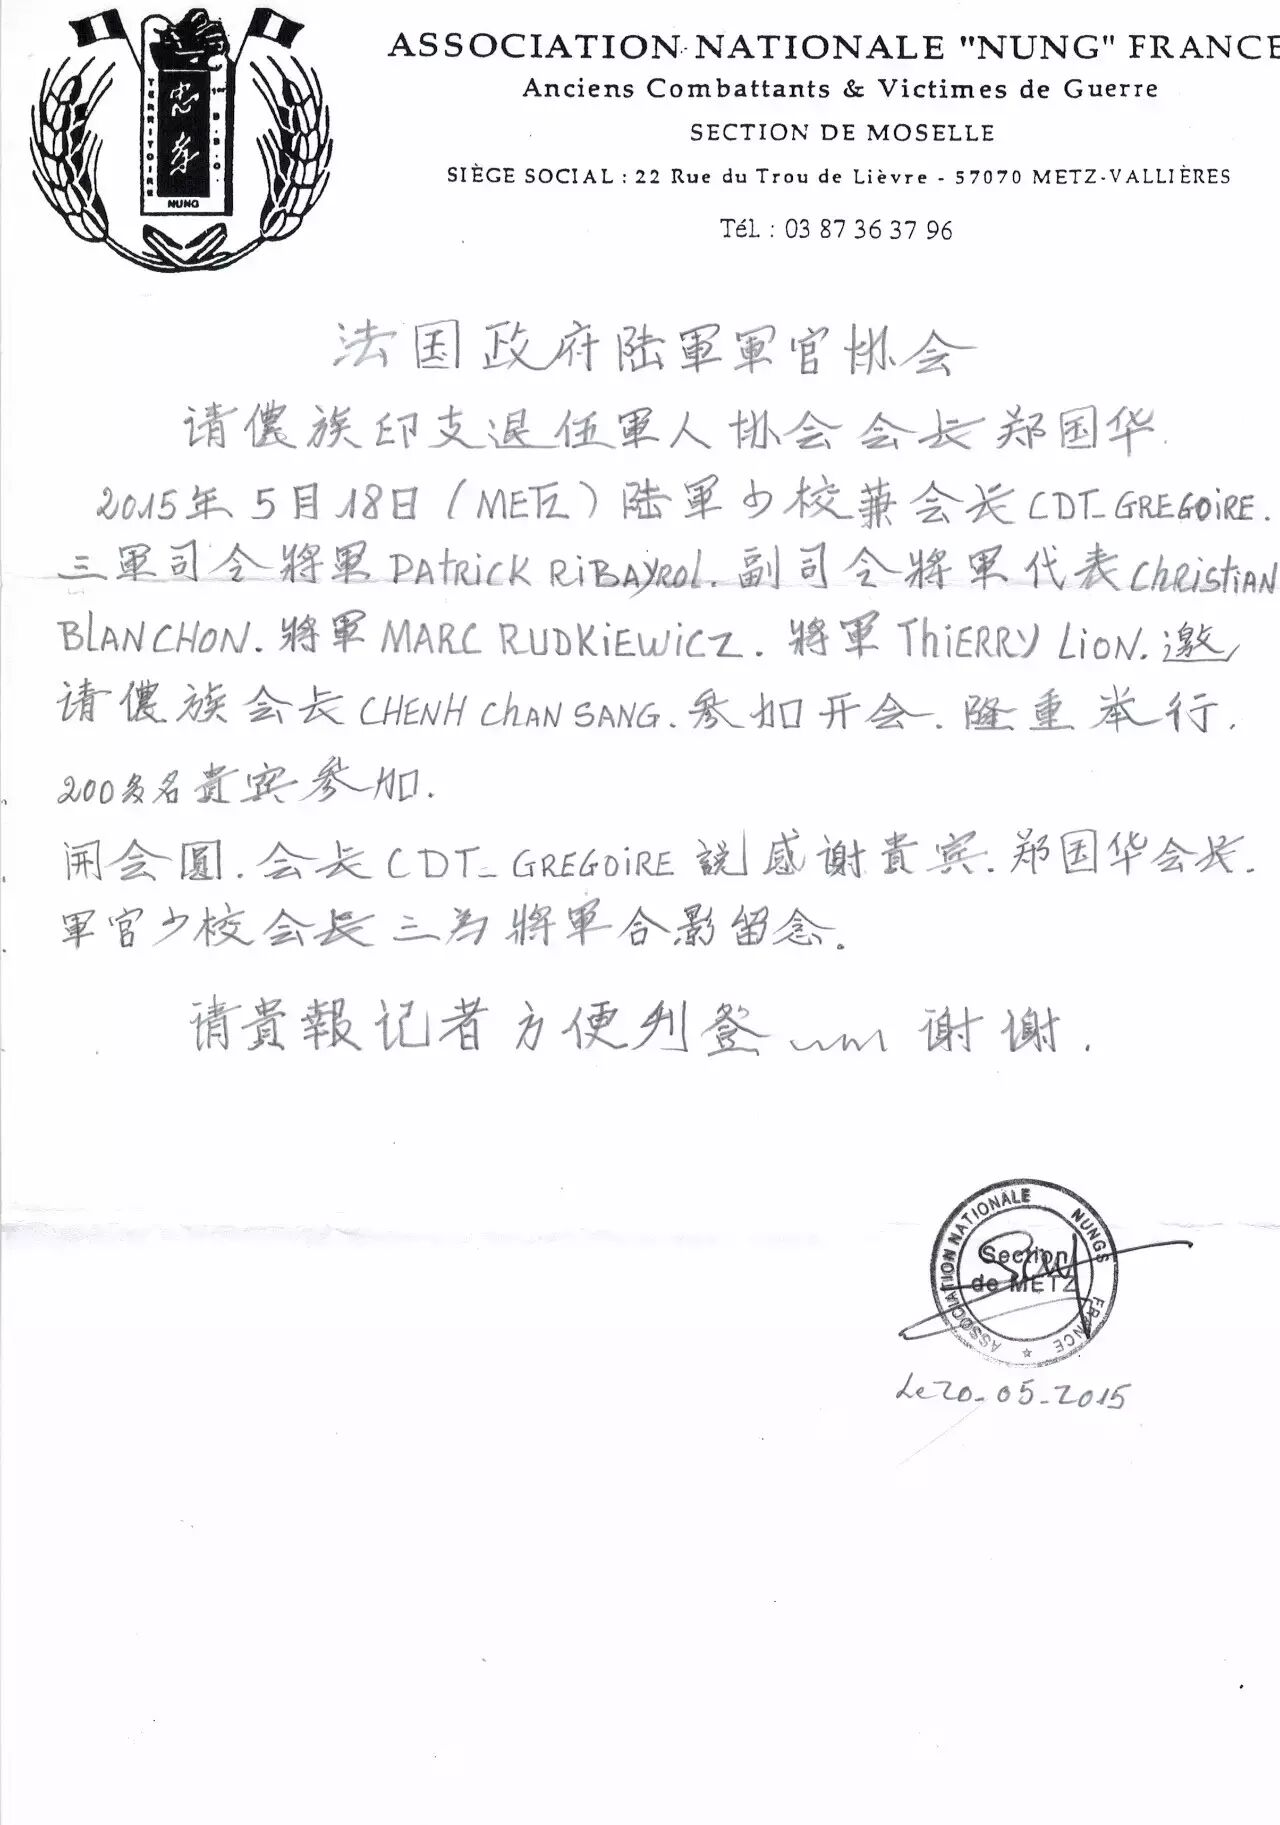 ASSOCIATION NATIONALE "NUNG" FRANCE
Anciens Combattants & Victimes de Guerre
SECTION DE MOSELLE
SIÈGE SOCIAL : 22 Rue du Trou de Lièvre - 57070 METZ-VALLIÈRES
Tél : 03 87 36 37 96
TERRITOIRE
忠孝
NUNG
法国政府陆軍軍官协会
请儂族印支退伍軍人协会会长郑国华.
2015年5月18日(METZ)陆軍少校兼会长CDT_GREGOIRE.
三軍司令將軍PATRICK RIBAYROL.副司令將軍代表CHRISTIAN
BLANCHON.將軍MARC RUDKIEWICZ.將軍THIERRY LION.邀
请儂族会长CHENH CHAN SANG.参加开会.隆重举行.
200多名貴宾参加.
開会圓.会长CDT_GREGOIRE說感谢貴宾.郑国华会长.
軍官少校会長三为將軍合影留念.
请貴報记者方便刋登 谢谢.
ASSOCIATION NATIONALE NUNGS FRANCE
Section
de METZ
Le 20-05-2015